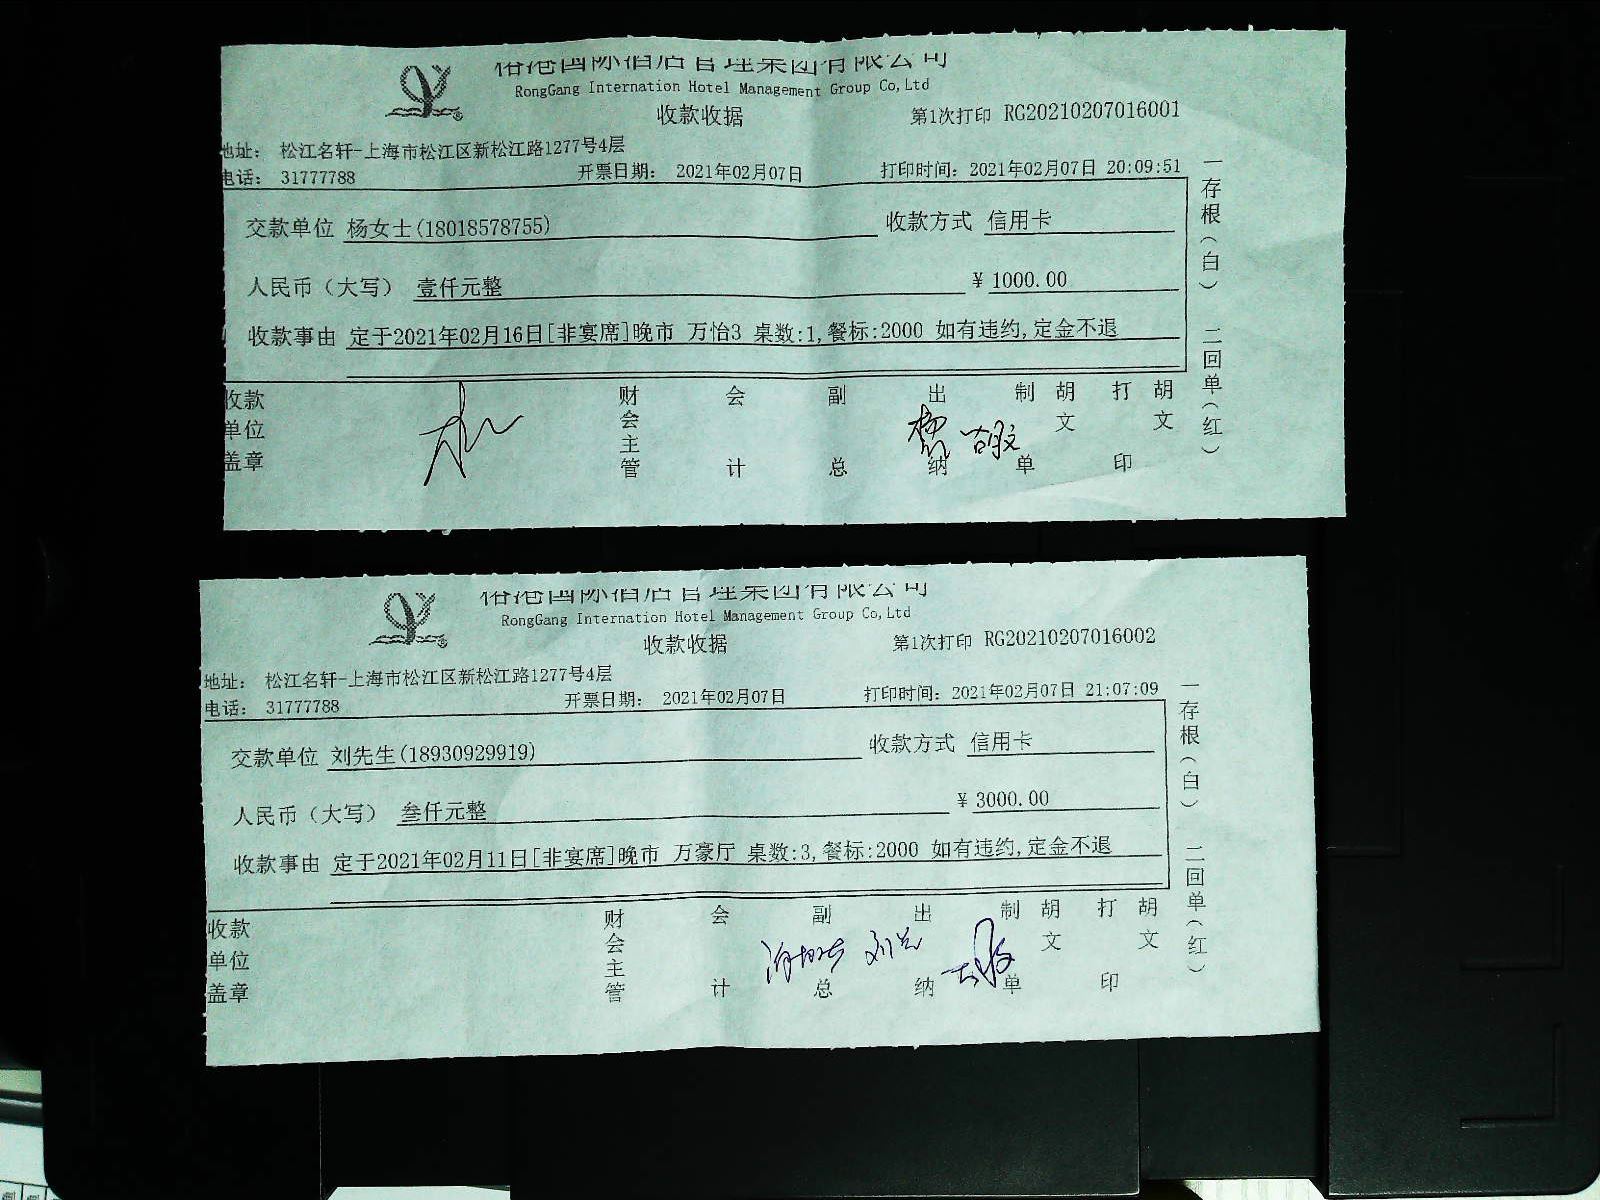 裕港国际酒店管理集团有限公司
RongGang Internation Hotel Management Group Co,Ltd
收款收据
第1次打印 RG20210207016001
地址: 松江名轩-上海市松江区新松江路1277号4层
电话: 31777788
开票日期: 2021年02月07日
打印时间: 2021年02月07日 20:09:51
交款单位 杨女士(18018578755)
收款方式 信用卡
人民币(大写) 壹仟元整
¥ 1000.00
收款事由 定于2021年02月16日[非宴席]晚市 万怡3 桌数:1,餐标:2000 如有违约,定金不退
收款单位盖章
财会主管
会计
副总
出纳
制单
胡文
打印
胡文
一存根(白) 二回单(红)
裕港国际酒店管理集团有限公司
RongGang Internation Hotel Management Group Co,Ltd
收款收据
第1次打印 RG20210207016002
地址: 松江名轩-上海市松江区新松江路1277号4层
电话: 31777788
开票日期: 2021年02月07日
打印时间: 2021年02月07日 21:07:09
交款单位 刘先生(18930929919)
收款方式 信用卡
人民币(大写) 叁仟元整
¥ 3000.00
收款事由 定于2021年02月11日[非宴席]晚市 万豪厅 桌数:3,餐标:2000 如有违约,定金不退
收款单位盖章
财会主管
会计
副总
出纳
制单
胡文
打印
胡文
一存根(白) 二回单(红)